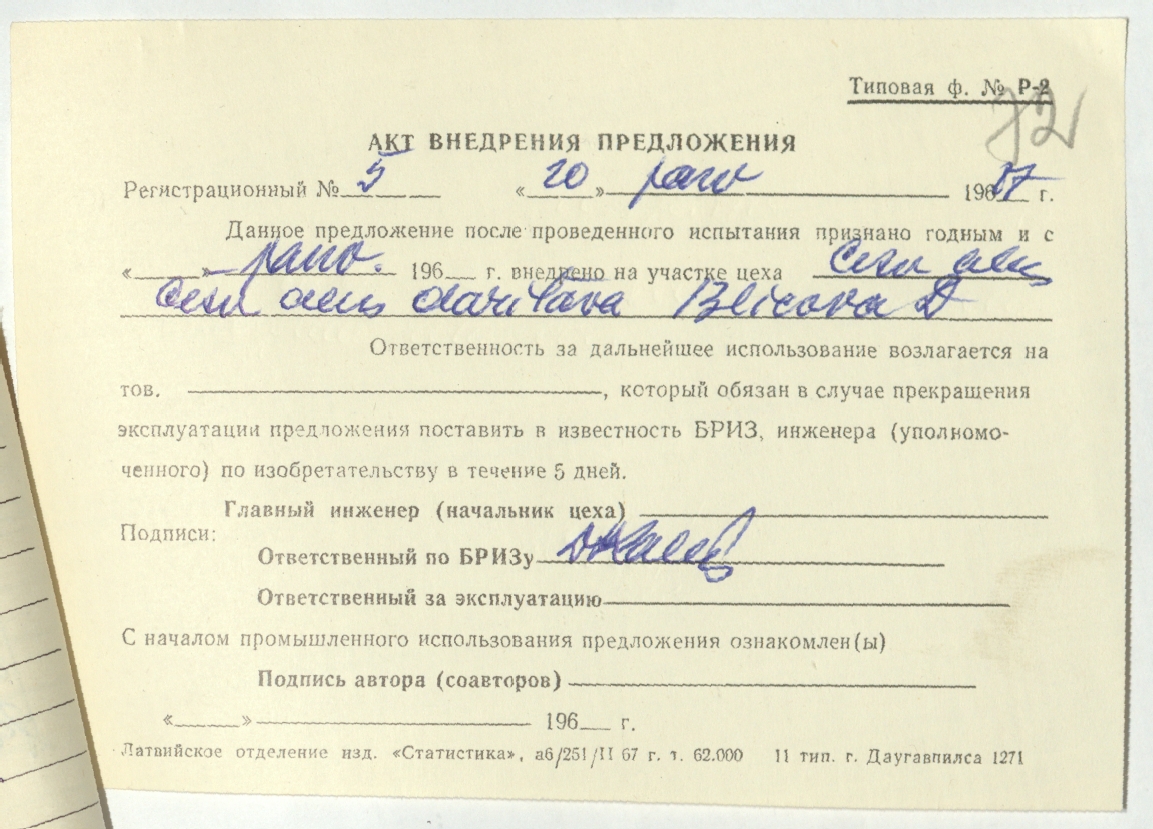 Типовая ф. № Р-2
72
АКТ ВНЕДРЕНИЯ ПРЕДЛОЖЕНИЯ
Регистрационный № 5 « 20 » 1967 г.
Данное предложение после проведенного испытания признано годным и с
« » 196 г. внедрено на участке цеха
Ответственность за дальнейшее использование возлагается на
тов. , который обязан в случае прекращения
эксплуатации предложения поставить в известность БРИЗ, инженера (уполномо-
ченного) по изобретательству в течение 5 дней.
Главный инженер (начальник цеха)
Подписи:
Ответственный по БРИЗу
Ответственный за эксплуатацию
С началом промышленного использования предложения ознакомлен(ы)
Подпись автора (соавторов)
« » 196 г.
Латвийское отделение изд. «Статистика», аб/251/II 67 г. т. 62.000 11 тип. г. Даугавпилса 1271